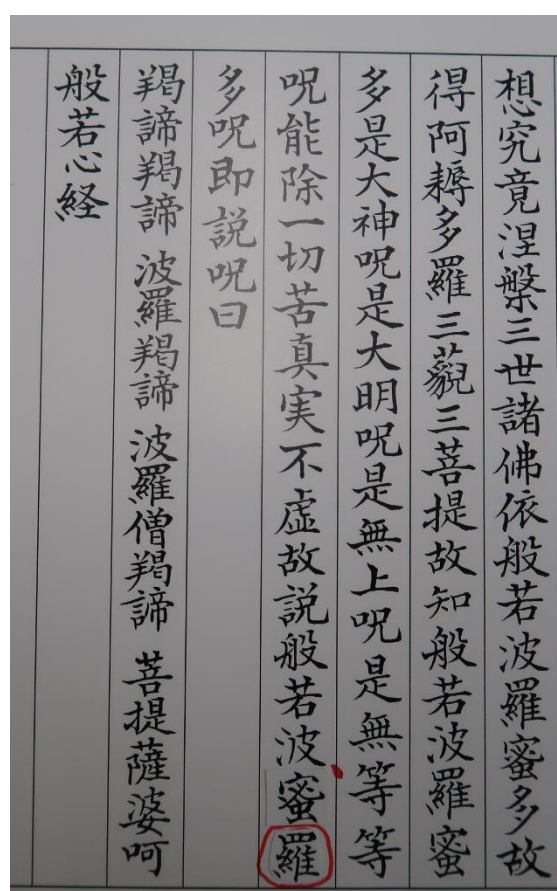 想究竟涅槃三世諸佛依般若波羅蜜多故
得阿耨多羅三藐三菩提故知般若波羅蜜
多是大神呪是大明呪是無上呪是無等等
呪能除一切苦真実不虚故説般若波蜜羅
多呪即説呪曰
羯諦羯諦 波羅羯諦 波羅僧羯諦 菩提薩婆呵
般若心経